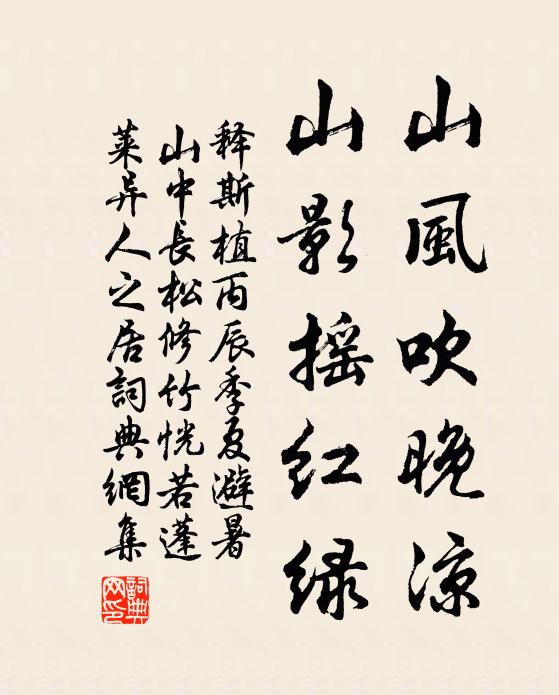 山風吹晚涼
山影摇红绿
释斯植丙辰季夏避暑
山中長松修竹恍若蓬
莱异人之居詞典網集
詞典网印